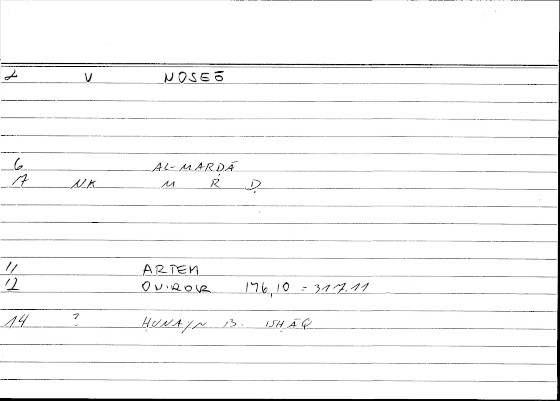 2 V NOSEŌ
6 AL-MARḌĀ
7 NK M R Ḍ
11 ARTEM
12 ONIROK 176,10 = 317.11
14 ? ḤUNAYN B. ISḤĀQ